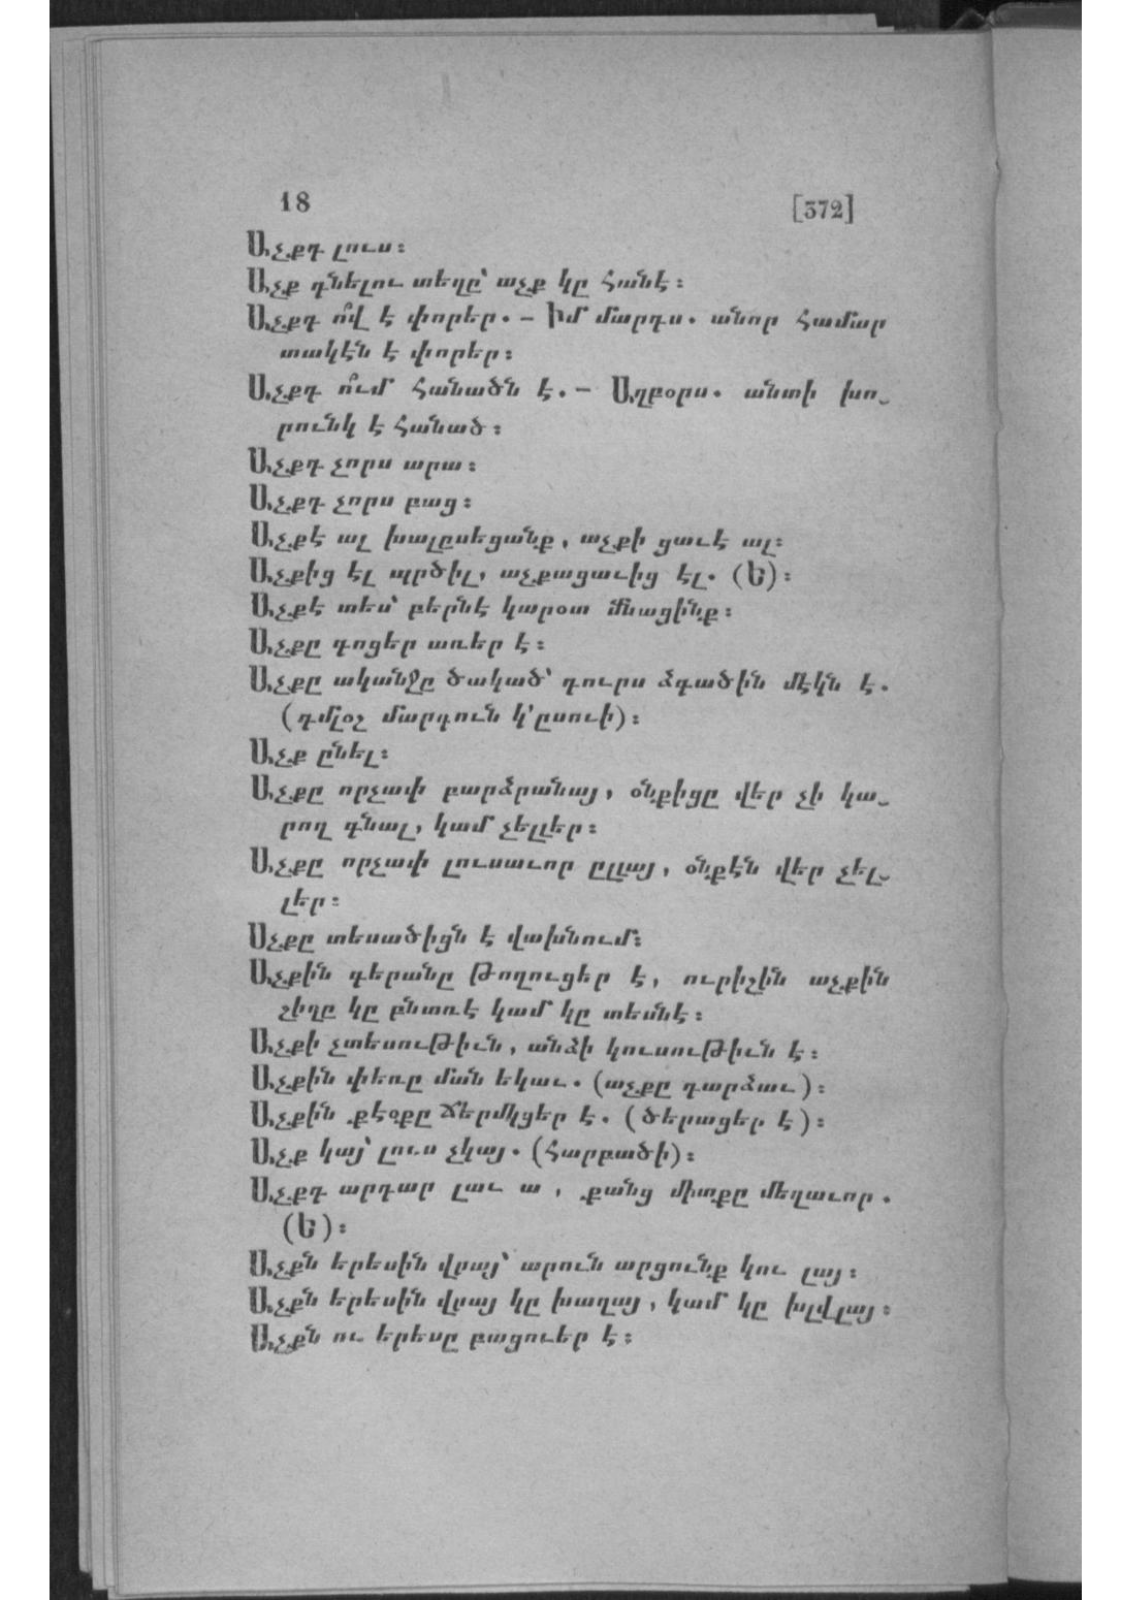 18 [372]
Աչքդ լուս։
Աչք գնելու տեղը՝ աչք կը հանէ։
Աչքդ ո՞վ է փորեր. – Իմ մարդս. անոր համար
տակէն է փորեր։
Աչքդ ո՞ւմ հանածն է. – Աղբօրս. անտի խո-
րունկ է հանած։
Աչքդ չորս արա։
Աչքդ չորս բաց։
Աչքէ ալ խալըսեցանք, աչքի ցաւէ ալ։
Աչքից էլ պրծիլ, աչքացաւից էլ. (Ե)։
Աչքէ տես՝ բերնէ կարօտ մնացինք։
Աչքը գոցեր առեր է։
Աչքը ականջը ծակած՝ դուրս ձգածին մէկն է.
(դմլօշ մարդուն կ՚ըսուի)։
Աչք ընել։
Աչքը որչափ բարձրանայ, օնքիցը վեր չի կա-
րող գնալ, կամ չելլեր։
Աչքը որչափ լուսաւոր ըլլայ, օնքէն վեր չել-
լեր։
Աչքը տեսածիցն է վախնում։
Աչքին գերանը թողուցեր է, ուրիշին աչքին
շիղը կը բնտռէ կամ կը տեսնէ։
Աչքի չտեսութիւն, անձի կուսութիւն է։
Աչքին փեռը ման եկաւ. (աչքը դարձաւ)։
Աչքին քէօքը ճերմկցեր է. (ծերացեր է)։
Աչք կայ՝ լուս չկայ. (Հարբածի)։
Աչքդ արդար լաւ ա, քանց միտքը մեղաւոր.
(Ե)։
Աչքն երեսին վրայ՝ արուն արցունք կու լայ։
Աչքն երեսին վրայ կը խաղայ, կամ կը խլվլայ։
Աչքն ու երեսը բացուեր է։